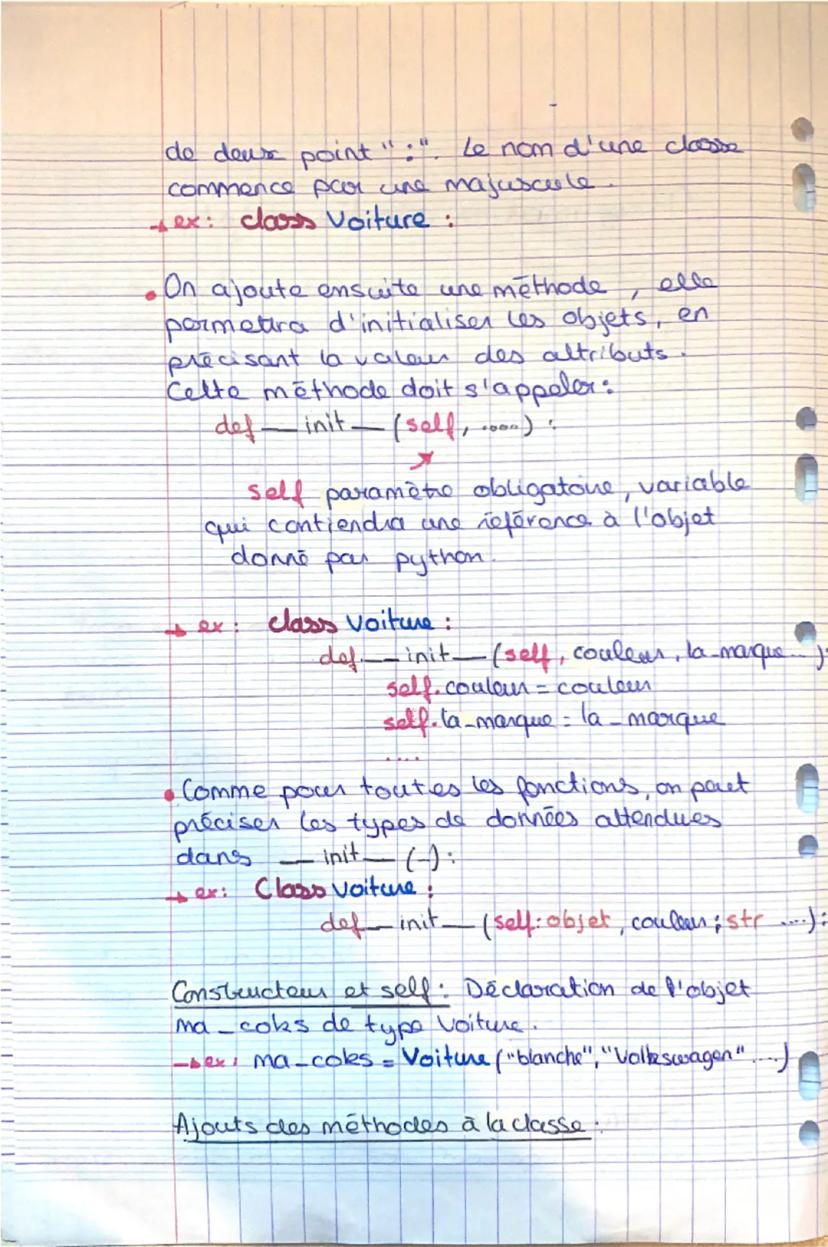 de deux point ":". Le nom d'une classe
commence par une majuscule.
→ ex: class Voiture :
• On ajoute ensuite une méthode, elle
permettra d'initialiser les objets, en
précisant la valeur des attributs.
Cette méthode doit s'appeler:
def __ init __ (self, .....) :
self paramètre obligatoire, variable
qui contiendra une référence à l'objet
donné par python.
→ ex: class Voiture :
def __ init __ (self, couleur, la_marque ...):
self.couleur = couleur
self.la_marque = la_marque
....
• Comme pour toutes les fonctions, on peut
préciser les types de données attendues
dans __ init __ (-):
→ ex: Class Voiture :
def __ init __ (self: objet, couleur : str ....):
Constructeur et self: Déclaration de l'objet
ma_coks de type Voiture.
→ ex: ma_coks = Voiture ("blanche", "Volkswagen" ....)
Ajouts des méthodes à la classe :